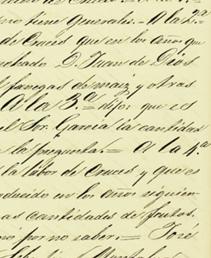 no tiene Generales. = A la 2ª
de Cruces que en los años que
D. Juan de Dios
fanegas de maiz y otras
A la 3ª dijo: que es
el Sor. Garcia la cantidad
la pregunta. = A la 4ª
la labor de Cruces y que es
producido en los años siguien
as cantidades de frutos.
no por no saber. = José